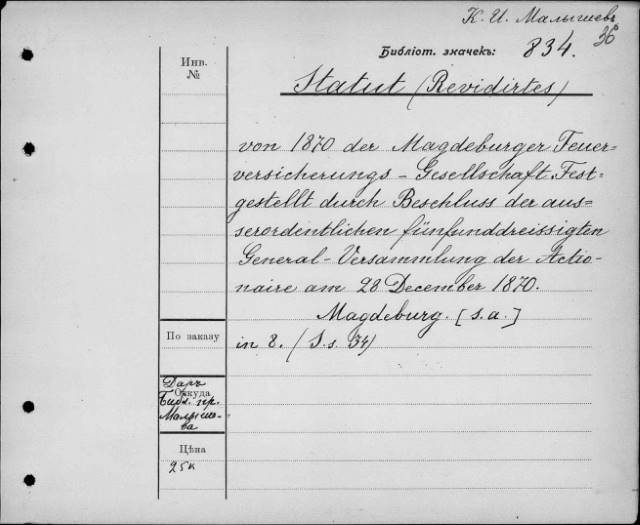 К. И. Малышевъ
36
Библіот. значекъ: 834.
Инв.
№
Statut (Revidirtes)
von 1870 der Magdeburger Feuer=
versicherungs-Gesellschaft. Fest=
gestellt durch Beschluss der aus=
serordentlichen fünfunddreissigten
General-Versammlung der Actio-
naire am 28 December 1870.
Magdeburg. [s.a.]
По заказу
in 8. (S.s. 34)
Даръ
Откуда
Библ. пр.
Малыше-
ва
Цѣна
25к